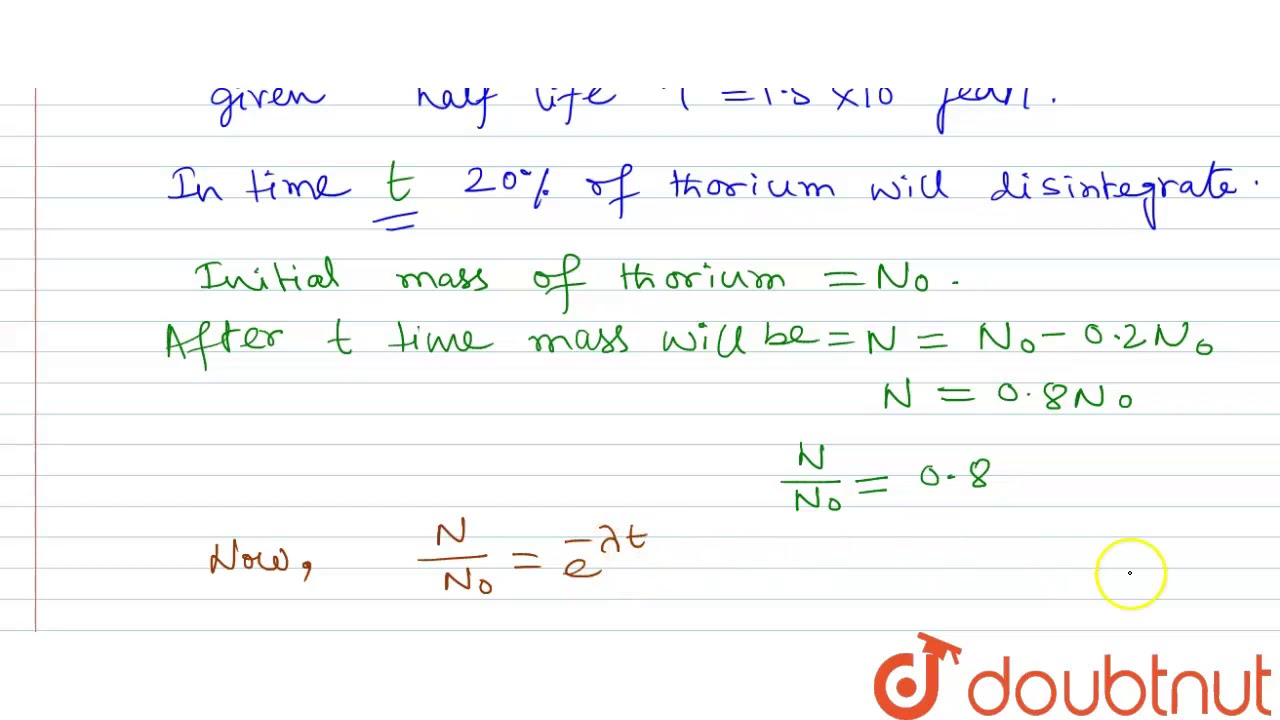 given half life T = 1.5 × 10 years.
In time t 20% of thorium will disintegrate.
Initial mass of thorium = N₀.
After t time mass will be = N = N₀ − 0.2N₀
N = 0.8N₀
N/N₀ = 0.8
Now, N/N₀ = e^−λt
doubtnut